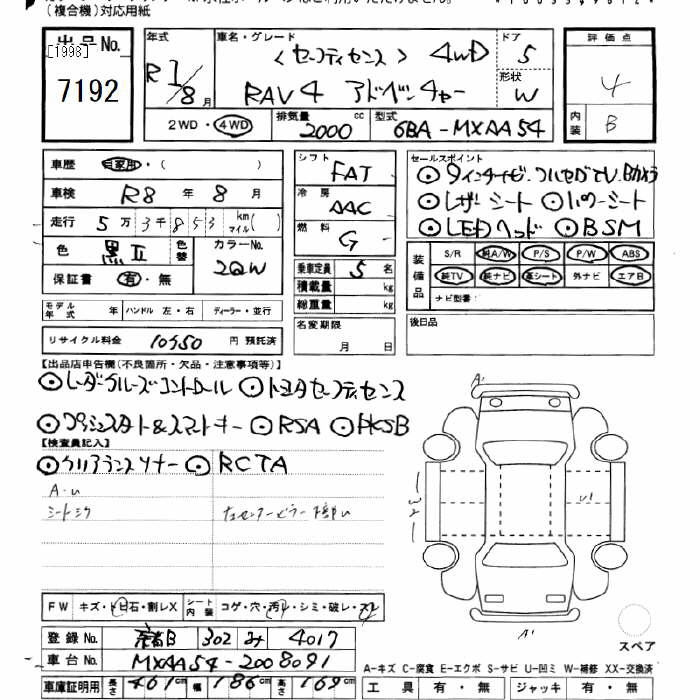 (複合機)対応用紙
出品No.
[1998]
7192
年式 R1/8月
車名・グレード <セーフティセンス> 4WD
RAV4 アドベンチャー
ドア 5
形状 W
2WD・4WD 排気量 2000 cc 型式 6BA-MXAA54
評価点 4
内装 B
車歴 自家用・( )
車検 R8年 8月
走行 5万3千853 km マイル( )
色 黒Ⅱ 色替 カラーNo. 2QW
保証書 有・無
モデル年式 年 ハンドル 左・右 ディーラー・並行
リサイクル料金 10550 円 預託済
シフト FAT
冷房 AAC
燃料 G
乗車定員 5 名
積載量 kg
総重量 kg
名変期限 月 日
セールスポイント
⊙9インチナビ・フルセグTV・Bカメラ
⊙レザーシート ⊙パワーシート
⊙LEDヘッド ⊙BSM
装備品 S/R 純A/W P/S P/W ABS
純TV 純ナビ 革シート 外ナビ エアB
ナビ型番:
後日品
【出品店申告欄(不良箇所・欠品・注意事項等)】
⊙レーダークルーズコントロール ⊙トヨタセーフティセンス
⊙プッシュスタート&スマートキー ⊙RSA ⊙PKSB
【検査員記入】
⊙クリアランスソナー ⊙RCTA
A・U
シートスク
センターピラー下部U
A'
U'
A'
スペア
FW キズ・トビ石・割レX シート内装 コゲ・穴・汚レ・シミ・破レ・スレ
登録No. 京都 302 み 4017
車台No. MXAA54-2008091
車庫証明用 長さ 461cm 幅 186cm 高さ 169cm
A-キズ C-腐食 E-エクボ S-サビ U-凹ミ W-補修 XX-交換済
工具 有・無 ジャッキ 有・無